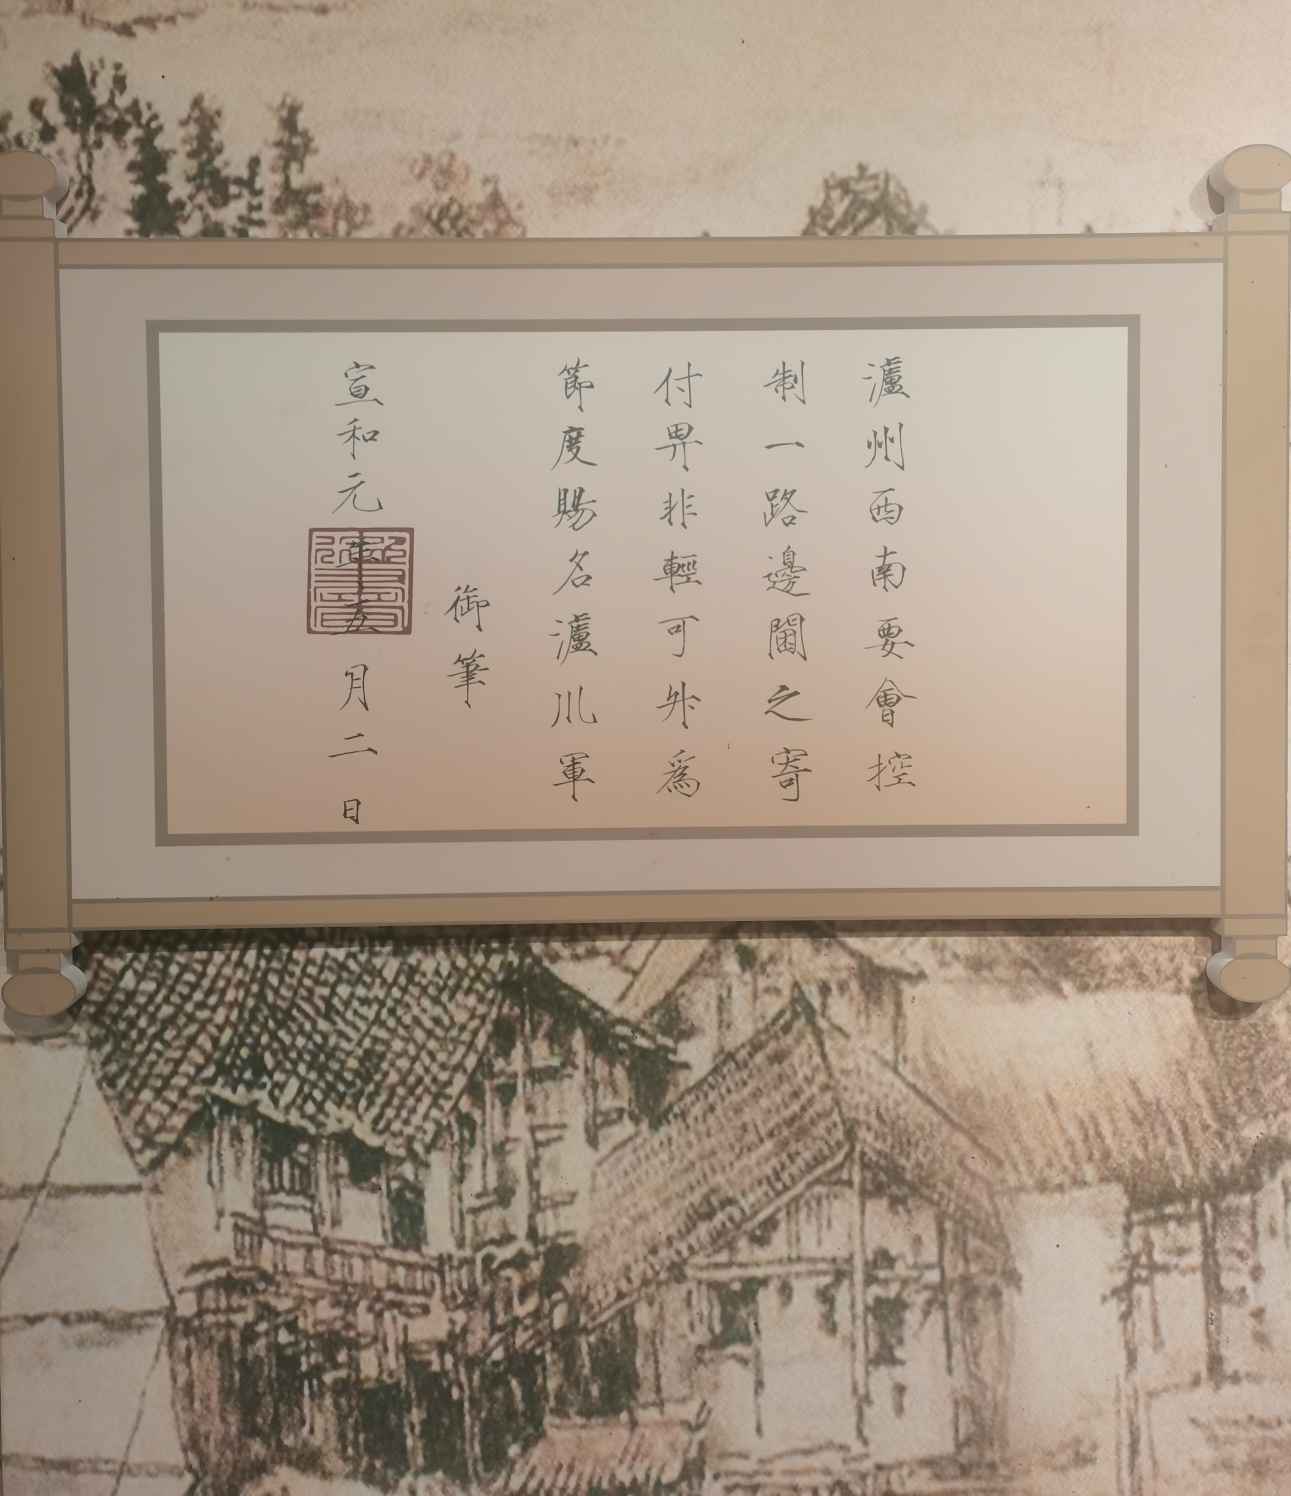 瀘州西南要會控
制一路邊閫之寄
付畀非輕可升爲
節度賜名瀘川軍
御筆
宣和元年五月二日
御書之寶